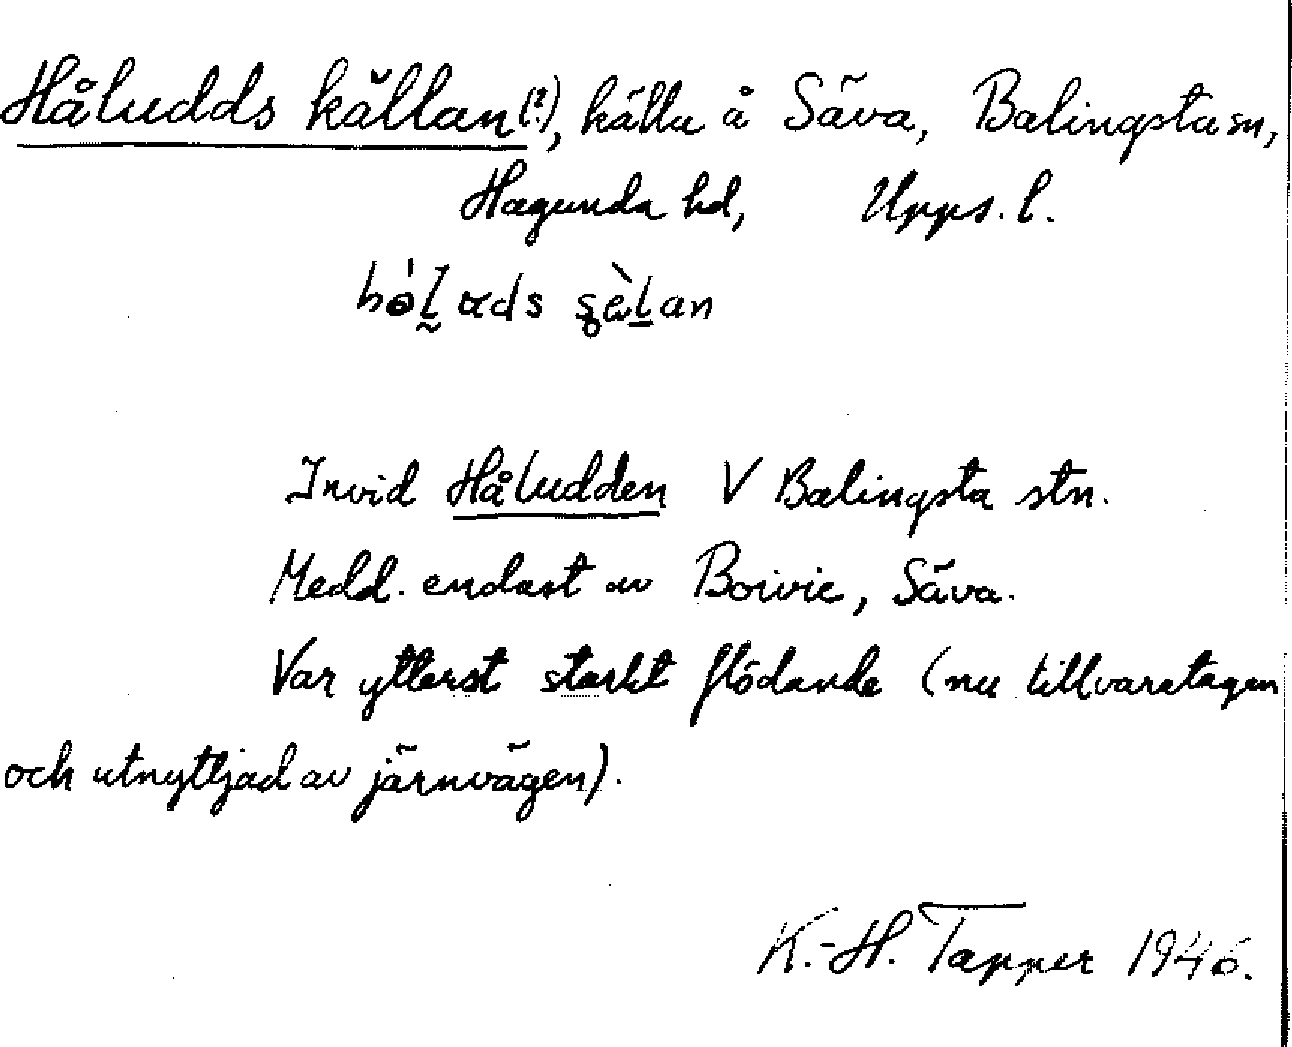 Håludds källan(?), källa å Säva, Balingsta sn,
Hagunda hd, Upps. l.
Invid Håludden V Balingsta stn.
Medd. endast av Boivie, Säva.
Var ytterst starkt flödande (nu tillvaratagen
och utnyttjad av järnvägen).
K.-H. Tapper 1946.